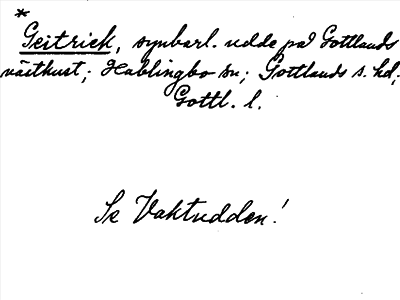 *
Geitrick, synbarl. udde på Gottlands
västkust; Hablingbo sn; Gottlands s. hd;
Gottl. l.
Se Vaktudden!